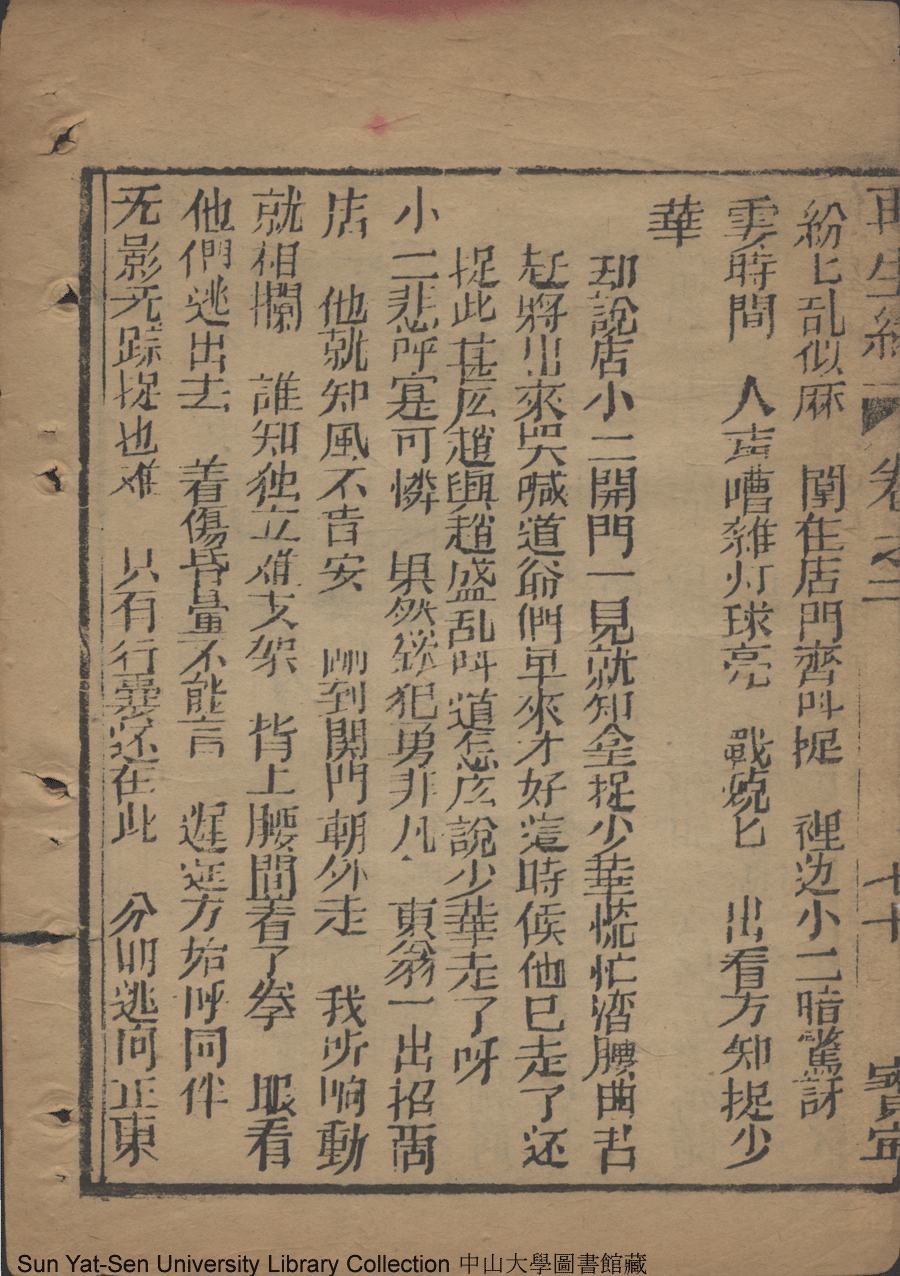 再生緣 卷之二 七十 寶寧
紛匕乱似麻 闈在店門齊呌捉 裡边小二暗驚訝
霎時間 人声嘈雜灯球亮 戰兢匕 出看方知捉少
華
却說店小二開門一見就知全捉少華慌忙湾腰曲背
赶將出來哭喊道爺們早來才好這時候他已走了还
捉此甚庅趙興趙盛乱呌道怎庅說少華走了呀
小二悲呼寔可憐 果然欽犯勇非凡 東翁一出招商
店 他就知風不吉安 剛到開門朝外走 我听响動
就相攔 誰知独立难支架 背上腰間着了拳 眼看
他們逃出去 着傷昏暈不能言 遲延方始呼同伴
无影无踪捉也难 只有行囊还在此 分明逃向正東
Sun Yat-Sen University Library Collection 中山大學圖書館藏